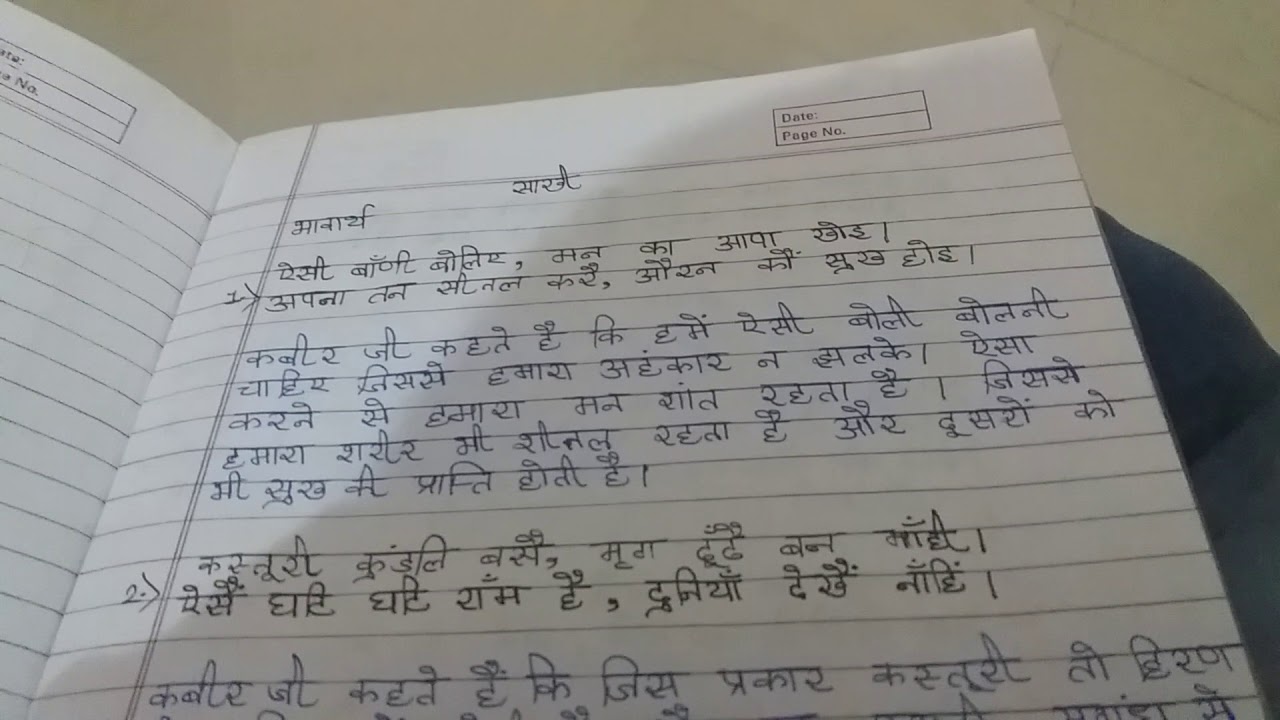 ate:
e No.
Date:
Page No.
साखी
भावार्थ
ऐसी बाँणी बोलिए, मन का आपा खोइ।
1.) अपना तन सीतल करै, औरन कौं सुख होइ।
कबीर जी कहते है कि हमें ऐसी बोली बोलनी
चाहिए जिससे हमारा अहंकार न झलके। ऐसा
करने से हमारा मन शांत रहता है। जिससे
हमारा शरीर भी शीतल रहता है और दूसरों को
भी सुख की प्राप्ति होती है।
कस्तूरी कुंडलि बसै, मृग ढूँढै बन माँही।
2.) ऐसैं घटि घटि राँम है, दुनियाँ देखैं नाँहिं।
कबीर जी कहते हैं कि जिस प्रकार कस्तूरी तो हिरण